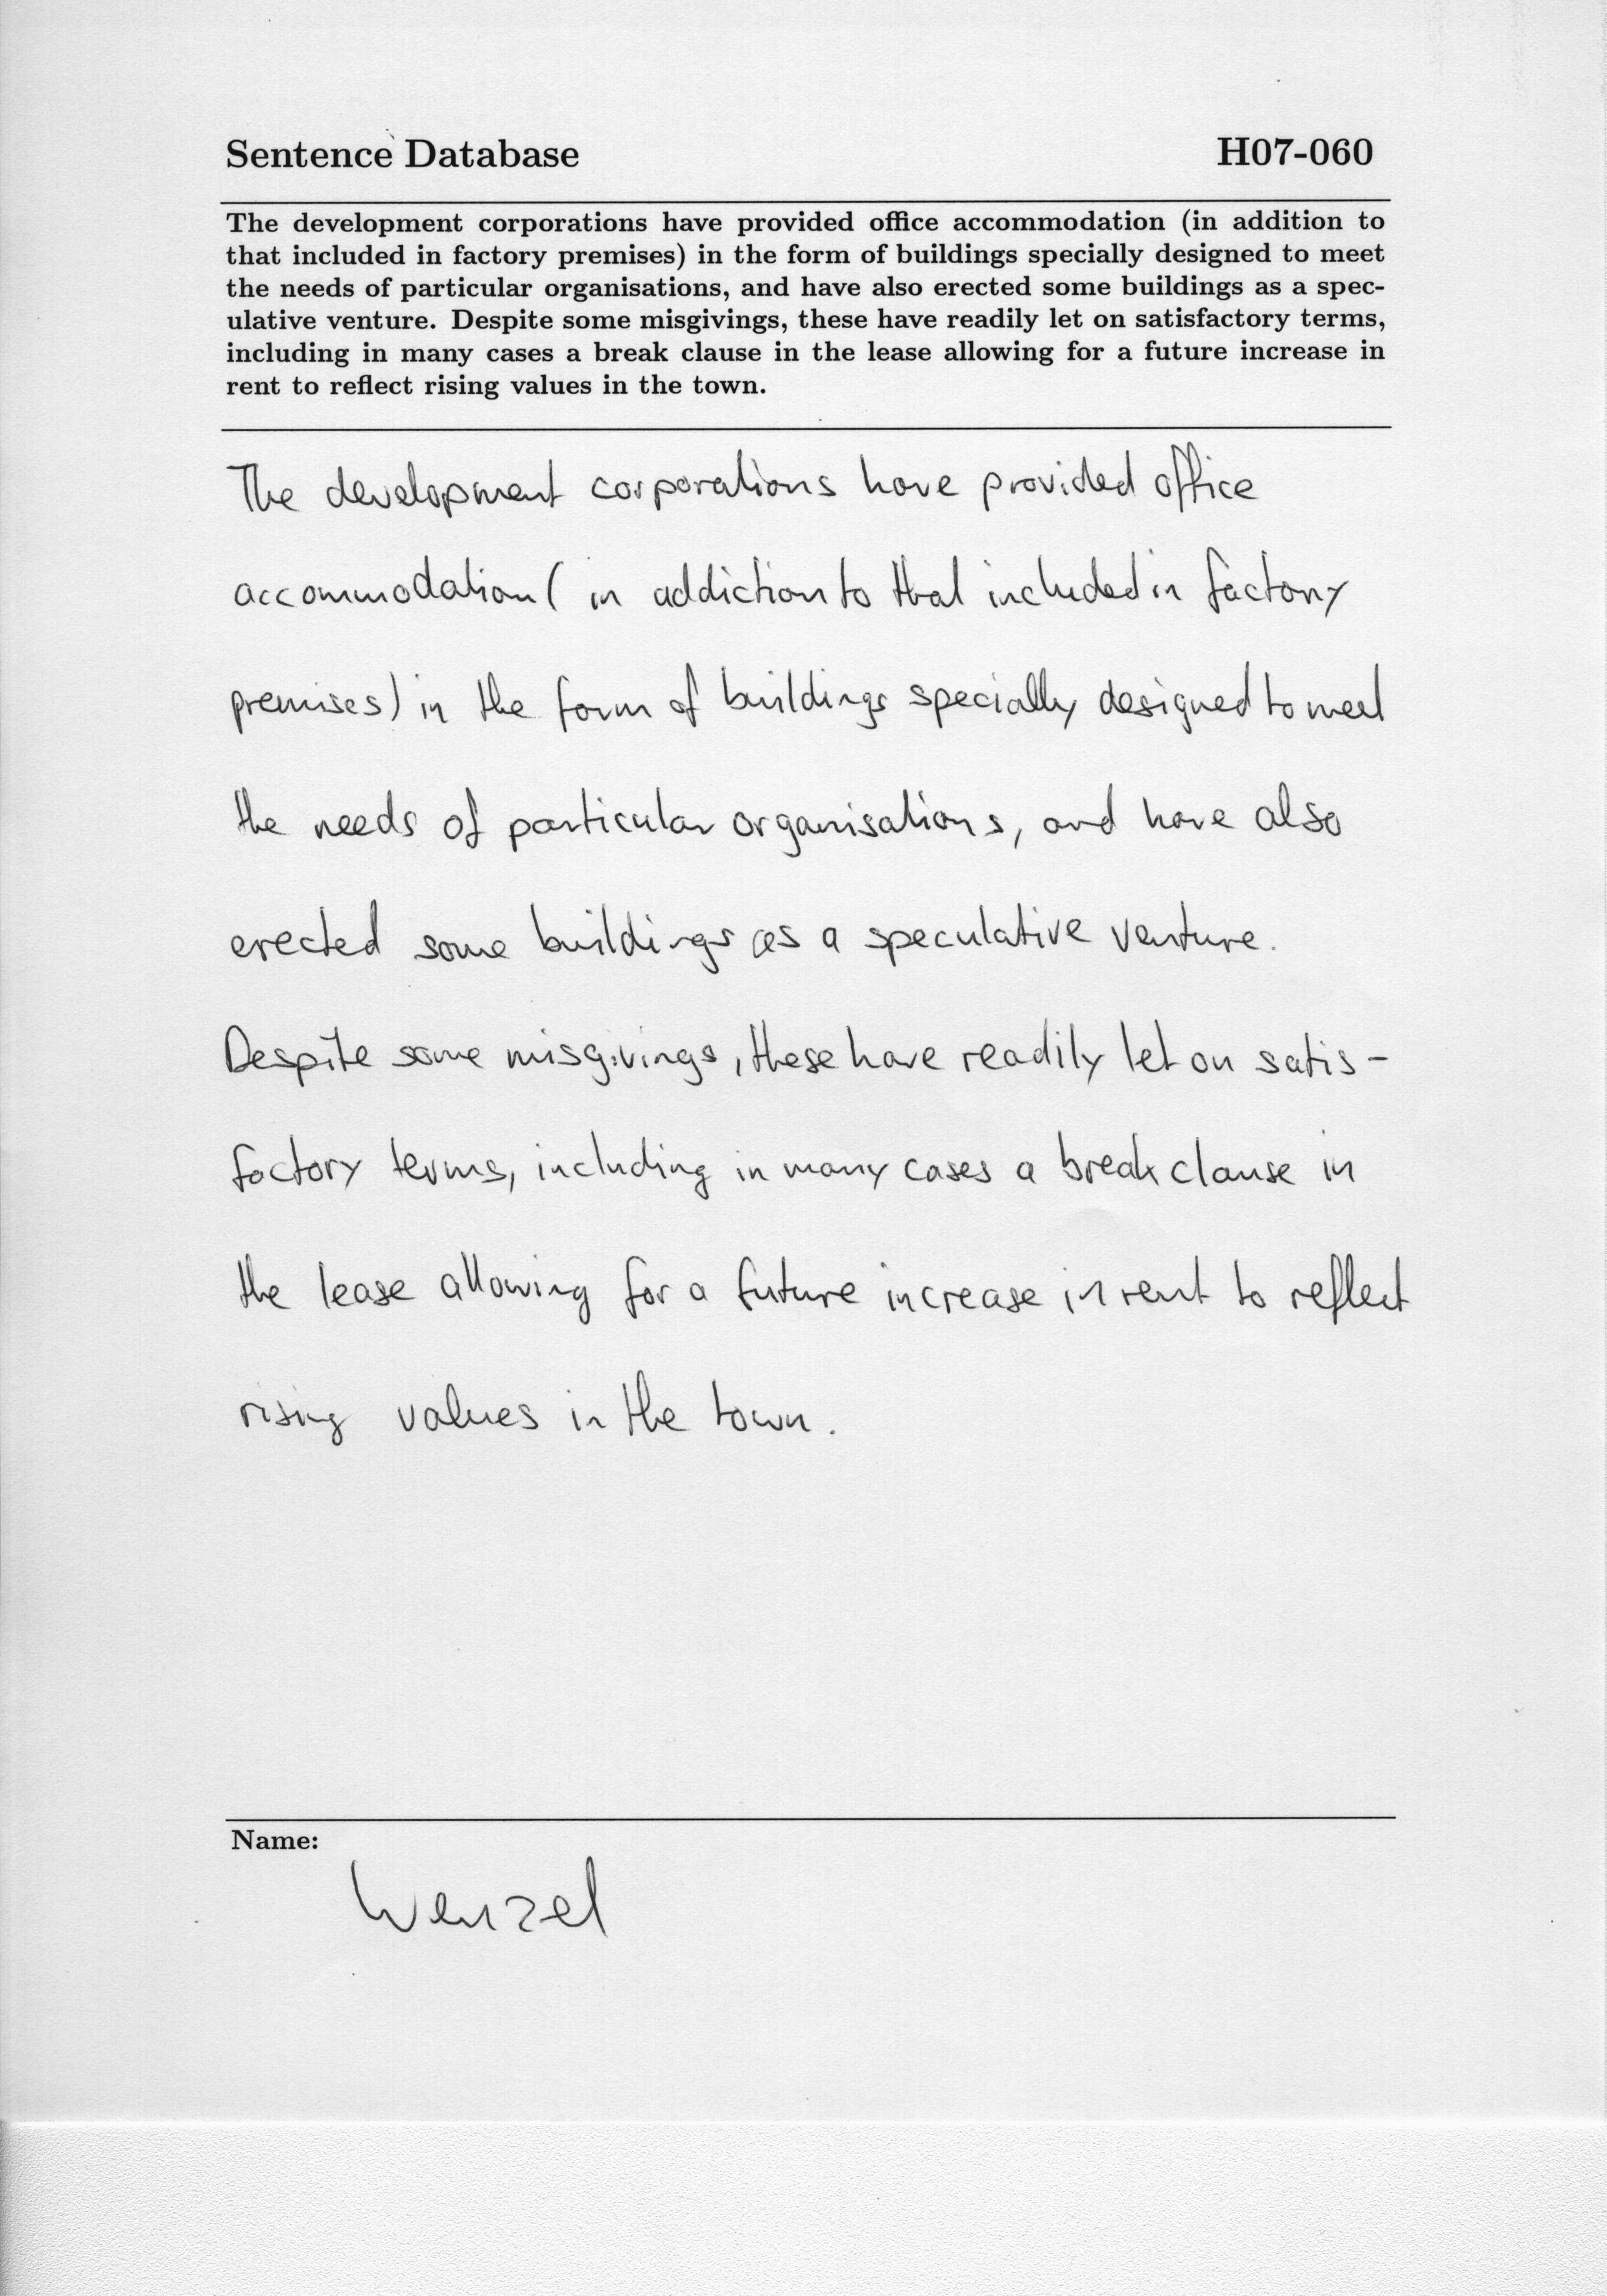 Sentence Database H07-060
The development corporations have provided office accommodation (in addition to
that included in factory premises) in the form of buildings specially designed to meet
the needs of particular organisations, and have also erected some buildings as a spec-
ulative venture. Despite some misgivings, these have readily let on satisfactory terms,
including in many cases a break clause in the lease allowing for a future increase in
rent to reflect rising values in the town.
The development corporations have provided office
accommodation ( in addiction to that included in factory
premises) in the form of buildings specially designed to meet
the needs of particular organisations, and have also
erected some buildings as a speculative venture.
Despite some misgivings, these have readily let on satis-
factory terms, including in many cases a break clause in
the lease allowing for a future increase in rent to reflect
rising values in the town.
Name:
Wenzel